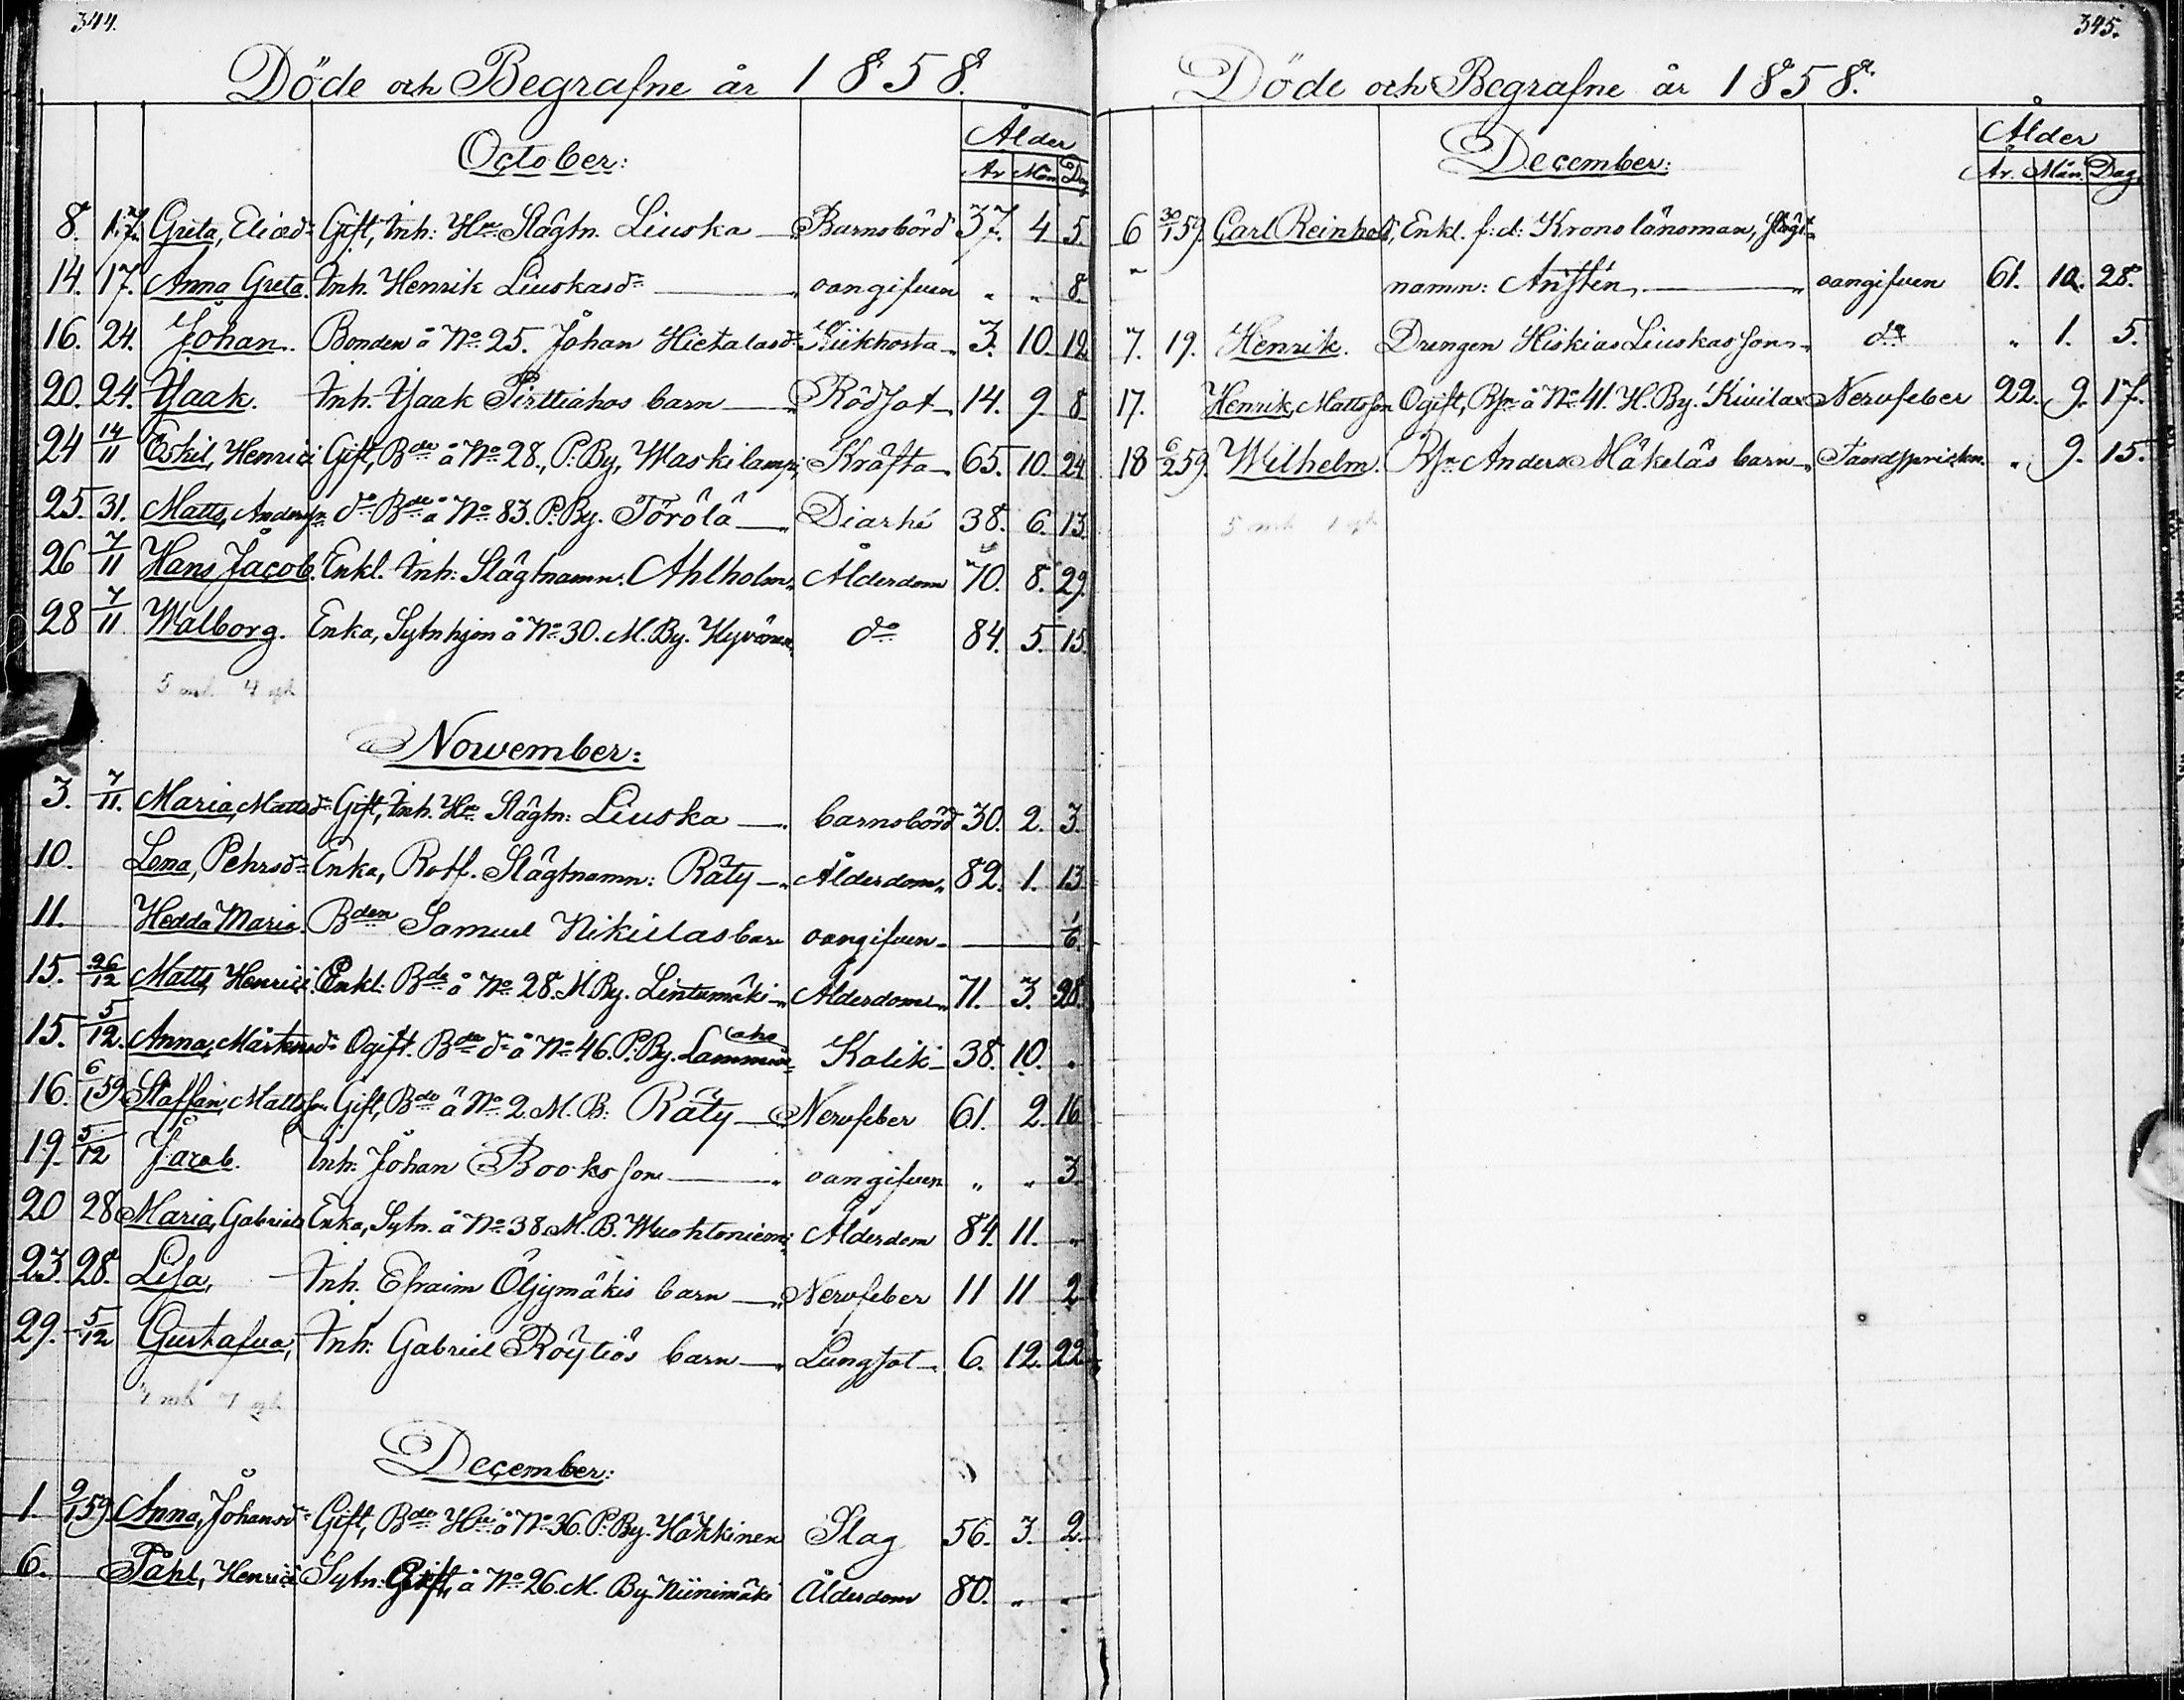 344.
Döde och Begrafne år 1858.
October:
Ålder
År Mån Dag
8. 17. Greta, Eliæd:r Gift, Inh: H:u Slägtn. Liuska Barnsbörd 37. 4 5.
14. 17. Anna Greta. Inh. Henrik Liuskas d:r oangifven " " 8.
16. 24. Johan. Bonden å No 25. Johan Hietalas d:o Kikhosta 3. 10. 12.
20. 24. Isaak. Inh. Isaak Pirttiahos barn Rödsot 14. 9 8
24 14/11 Eskil, Henrici Gift, Bde å No 28., P. By, Waskilampi, Kräfta 65. 10. 24
25. 31. Matts, Andersn do Bde å No 83. P. By. Törölä Diarhé 38. 6. 13
26 7/11 Hans Jacob. Enkl. Inh: Slägtnamn: Ahlholm Ålderdom 70. 8. 29.
28 7/11 Walborg. Enka, Sytnhjon å No 30. M. By. Hyvönen do 84. 5. 15.
5 mk 4 qk
Nowember:
3. 7/11. Maria, Mattsd:r Gift, Inh. H:u Slägtn: Liuska barnsbörd 30. 2. 3.
10. Lena, Pehrsd:r Enka, Rotf. Slägtnamn: Räty Ålderdom 82. 1. 13
11. Hedda Maria. Bden Samuel Nikulas barn oangifven 1/6.
15. 26/12 Matts, Henrici. Enkl. Bde å No 28. M By. Lintumäki Ålderdom 71. 3. 28.
15. 5/12. Anna, Mårtensd:r Ogift. Bde d:r å No 46. P. By. Lamminaho Kolik 38. 10. "
16. 6/1 59. Staffan, Mattsson Gift, Bde å No 2. M. B: Räty Nervfeber 61. 2. 16
19. 5/12 Jacob. Inh. Johan Books son oangifven " " 3.
20 28 Maria, Gabriels Enka, Sytn. å No 38. M. B. Wuohtoniemi Ålderdom 84. 11. "
23. 28. Lisa, Inh. Efraim Öljymäkis barn Nervfeber 11 11 2
29. 5/12 Gustafva, Inh: Gabriel Röytiös barn Lungsot 6. 12. 22
4 mk 7 qk
December:
1. 9/1 59. Anna, Johansd:r Gift, Bde H:u å No 36. P. By. Häkkinen Slag 56. 3. 2.
6. Påhl, Henrici Sytn: Gift, å No 26. M. By. Niinimäki Ålderdom 80. " "
345.
Döde och Begrafne år 1858.
December:
Ålder
År. Mån. Dag.
6 30/1 59. Carl Reinhold, Enkl. f: d: Kronolänsman, slägt-
namn: Anstén, oangifven 61. 10. 28.
7. 19. Henrik. Drengen Hiskias Liuskas son do " 1. 5.
17. Henrik, Mattsson Ogift, Bsn å No 41. H. By. Kivilax Nervfeber 22. 9. 17.
18 6/2 59. Wilhelm. Bsn Anders Mäkeläs barn Tandsprickn. " 9. 15.
5 mk 1 qk